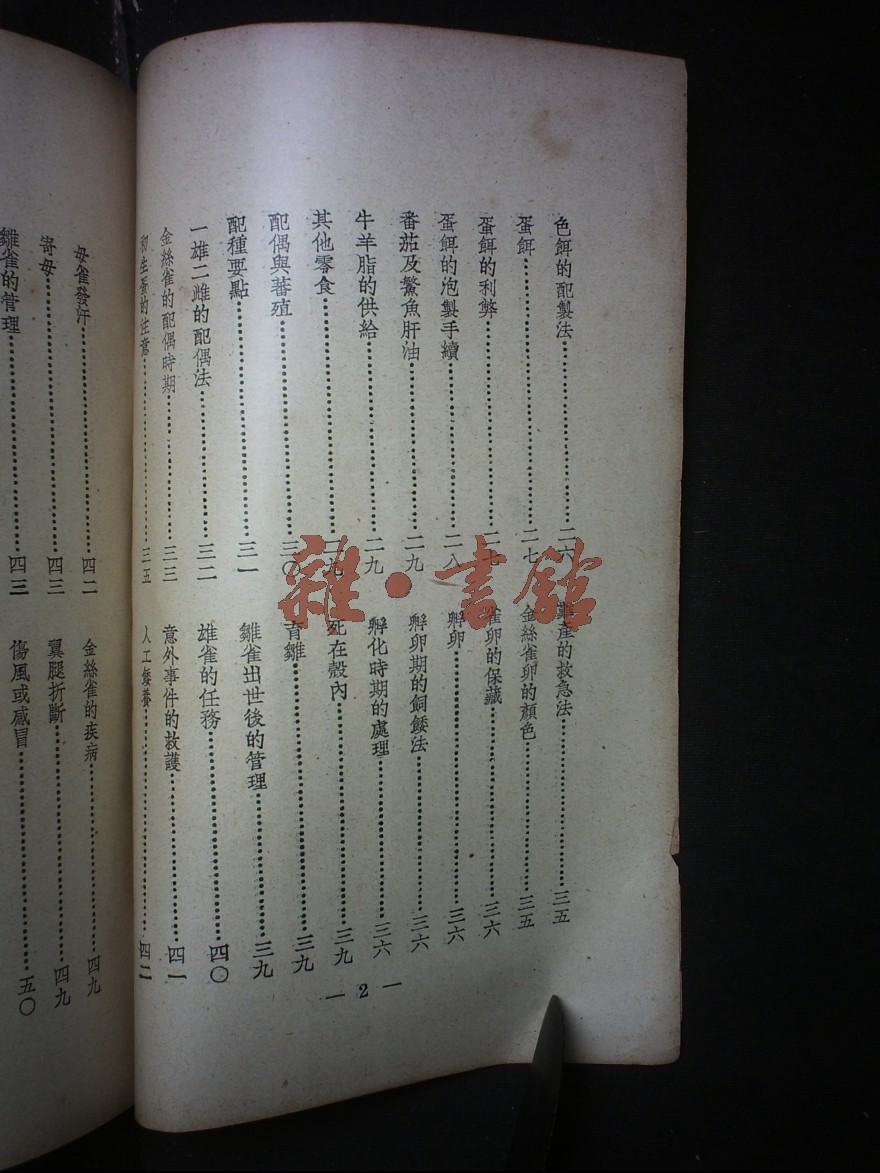 色餌的配製法……二六
蛋餌……二七
蛋餌的利弊……二七
蛋餌的泡製手續……二八
番茄及鱉魚肝油……二九
牛羊脂的供給……二九
其他零食……二九
配偶與蕃殖……三〇
配種要點……三一
一雄二雌的配偶法……三二
金絲雀的配偶時期……三三
初生蛋的注意……三五
難產的救急法……三五
金絲雀卵的顏色……三五
雀卵的保藏……三六
孵卵……三六
孵卵期的飼餧法……三六
孵化時期的處理……三六
死在殼內……三九
育雛……三九
雛雀出世後的管理……三九
雄雀的任務……四〇
意外事件的救護……四一
人工餧養……四二
— 2 —
母雀發汗……四二
寄母……四三
雛雀的管理……四三
金絲雀的疾病……四九
翼腿折斷……四九
傷風或感冒……五〇
雜·書館